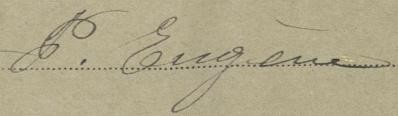 P. Eugène